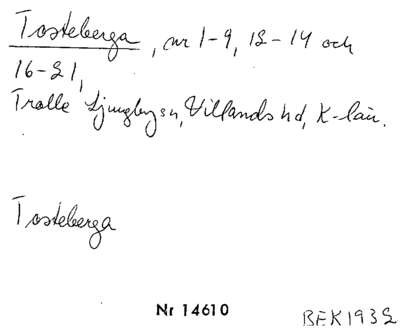 Tosteberga, nr 1-9, 12-14 och
16-21,
Trolle Ljungby sn, Villands hd, K-län.
Tosteberga
Nr 14610
BEK 1932